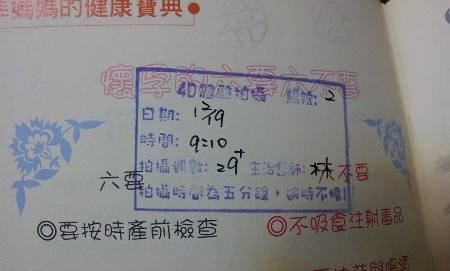 准媽媽的健康寶典●
懷孕的六要六不要
4D體驗拍攝 編號: 2
日期: 12/19
時間: 9:10
拍攝週數: 29+ 主治醫師: 林
六要 不要
拍攝時間為五分鐘, 逾時不候!!
◎要按時產前檢查 ◎不吸食注射毒品